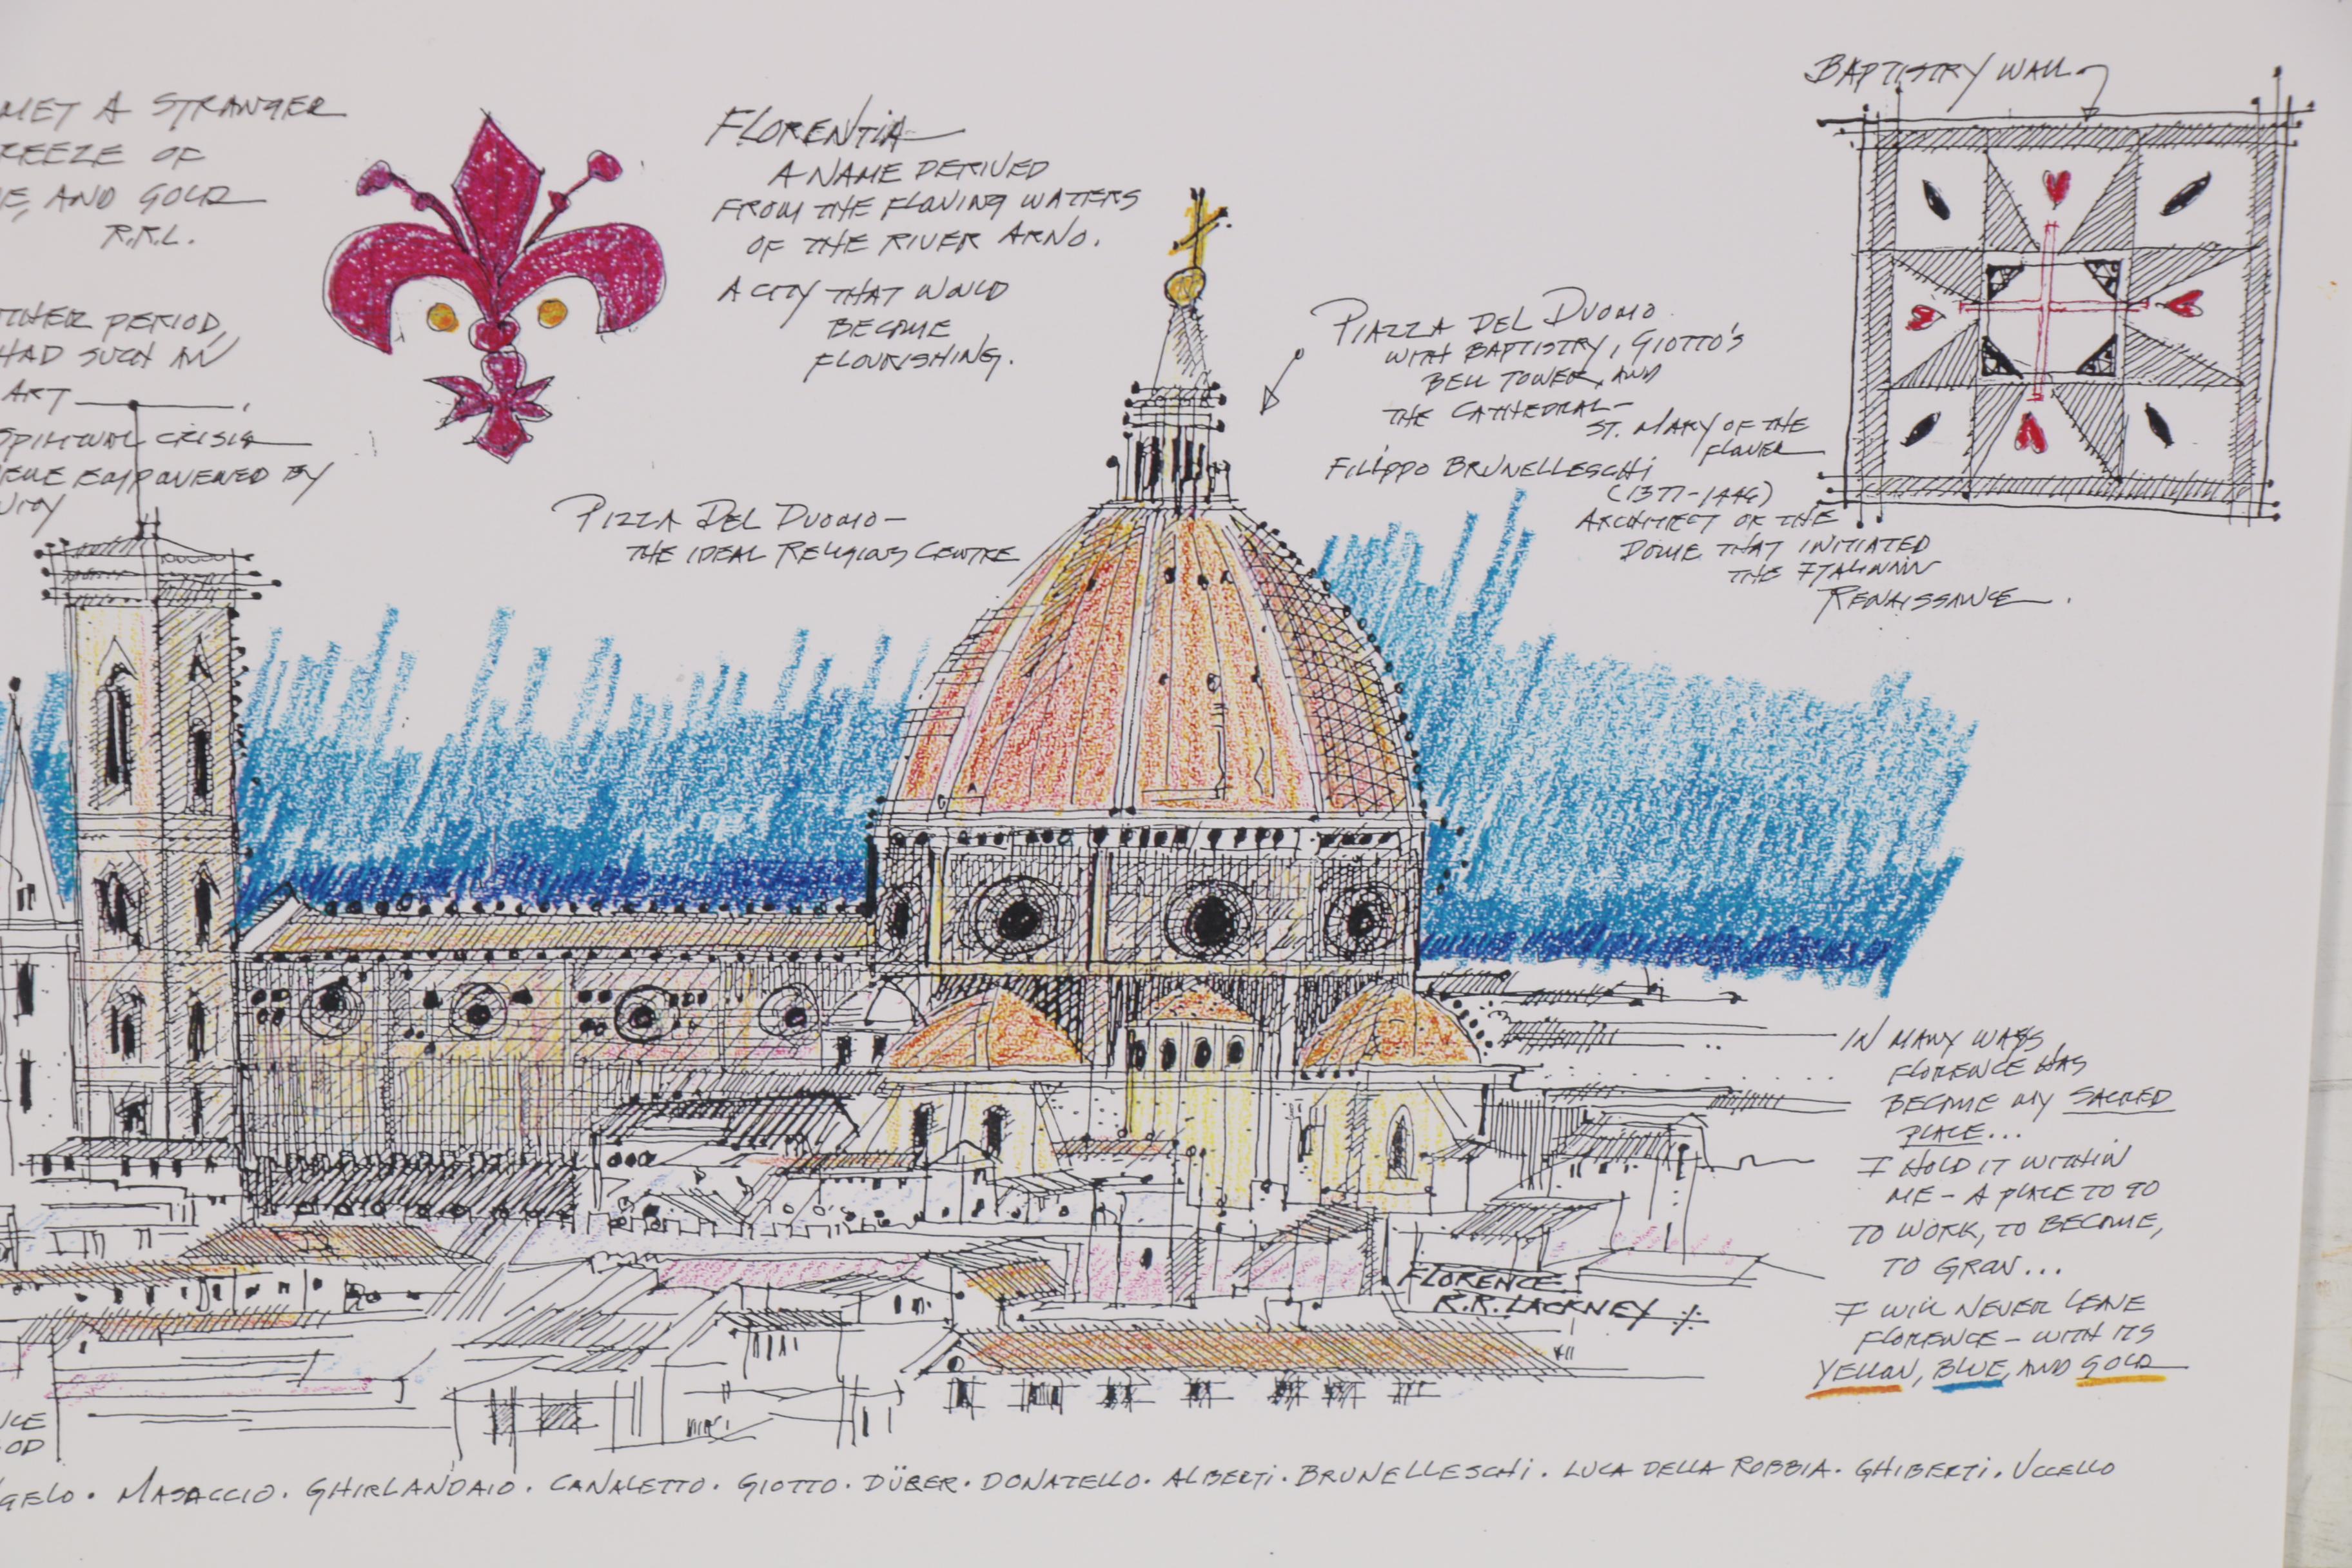 MET A STRANGER
REEZE OF
E, AND GOLD
R.R.L.
THER PERIOD,
HAD SUCH AN
ART
SPIRITUAL CRISIS
ERE EMPOWERED BY
FLORENTIA
A NAME DERIVED
FROM THE FLOWING WATERS
OF THE RIVER ARNO.
A CITY THAT WOULD
BECOME
FLOURISHING.
PIZZA DEL DUOMO—
THE IDEAL RELIGIOUS CENTRE
PIAZZA DEL DUOMO
WITH BAPTISTRY, GIOTTO'S
BELL TOWER, AND
THE CATHEDRAL—
ST. MARY OF THE
FLOWER
FILIPPO BRUNELLESCHI
(1377-1446)
ARCHITECT OF THE
DOME THAT INITIATED
THE ITALIAN
RENAISSANCE.
BAPTISTRY WALL
IN MANY WAYS
FLORENCE HAS
BECOME MY SACRED
PLACE...
I HOLD IT WITHIN
ME - A PLACE TO GO
TO WORK, TO BECOME,
TO GROW...
I WILL NEVER LEAVE
FLORENCE - WITH ITS
YELLOW, BLUE, AND GOLD
FLORENCE
R.R. LACKNEY
NCE
OD
NGELO. MASACCIO. GHIRLANDAIO. CANALETTO. GIOTTO. DÜRER. DONATELLO. ALBERTI. BRUNELLESCHI. LUCA DELLA ROBBIA. GHIBERTI. UCCELLO